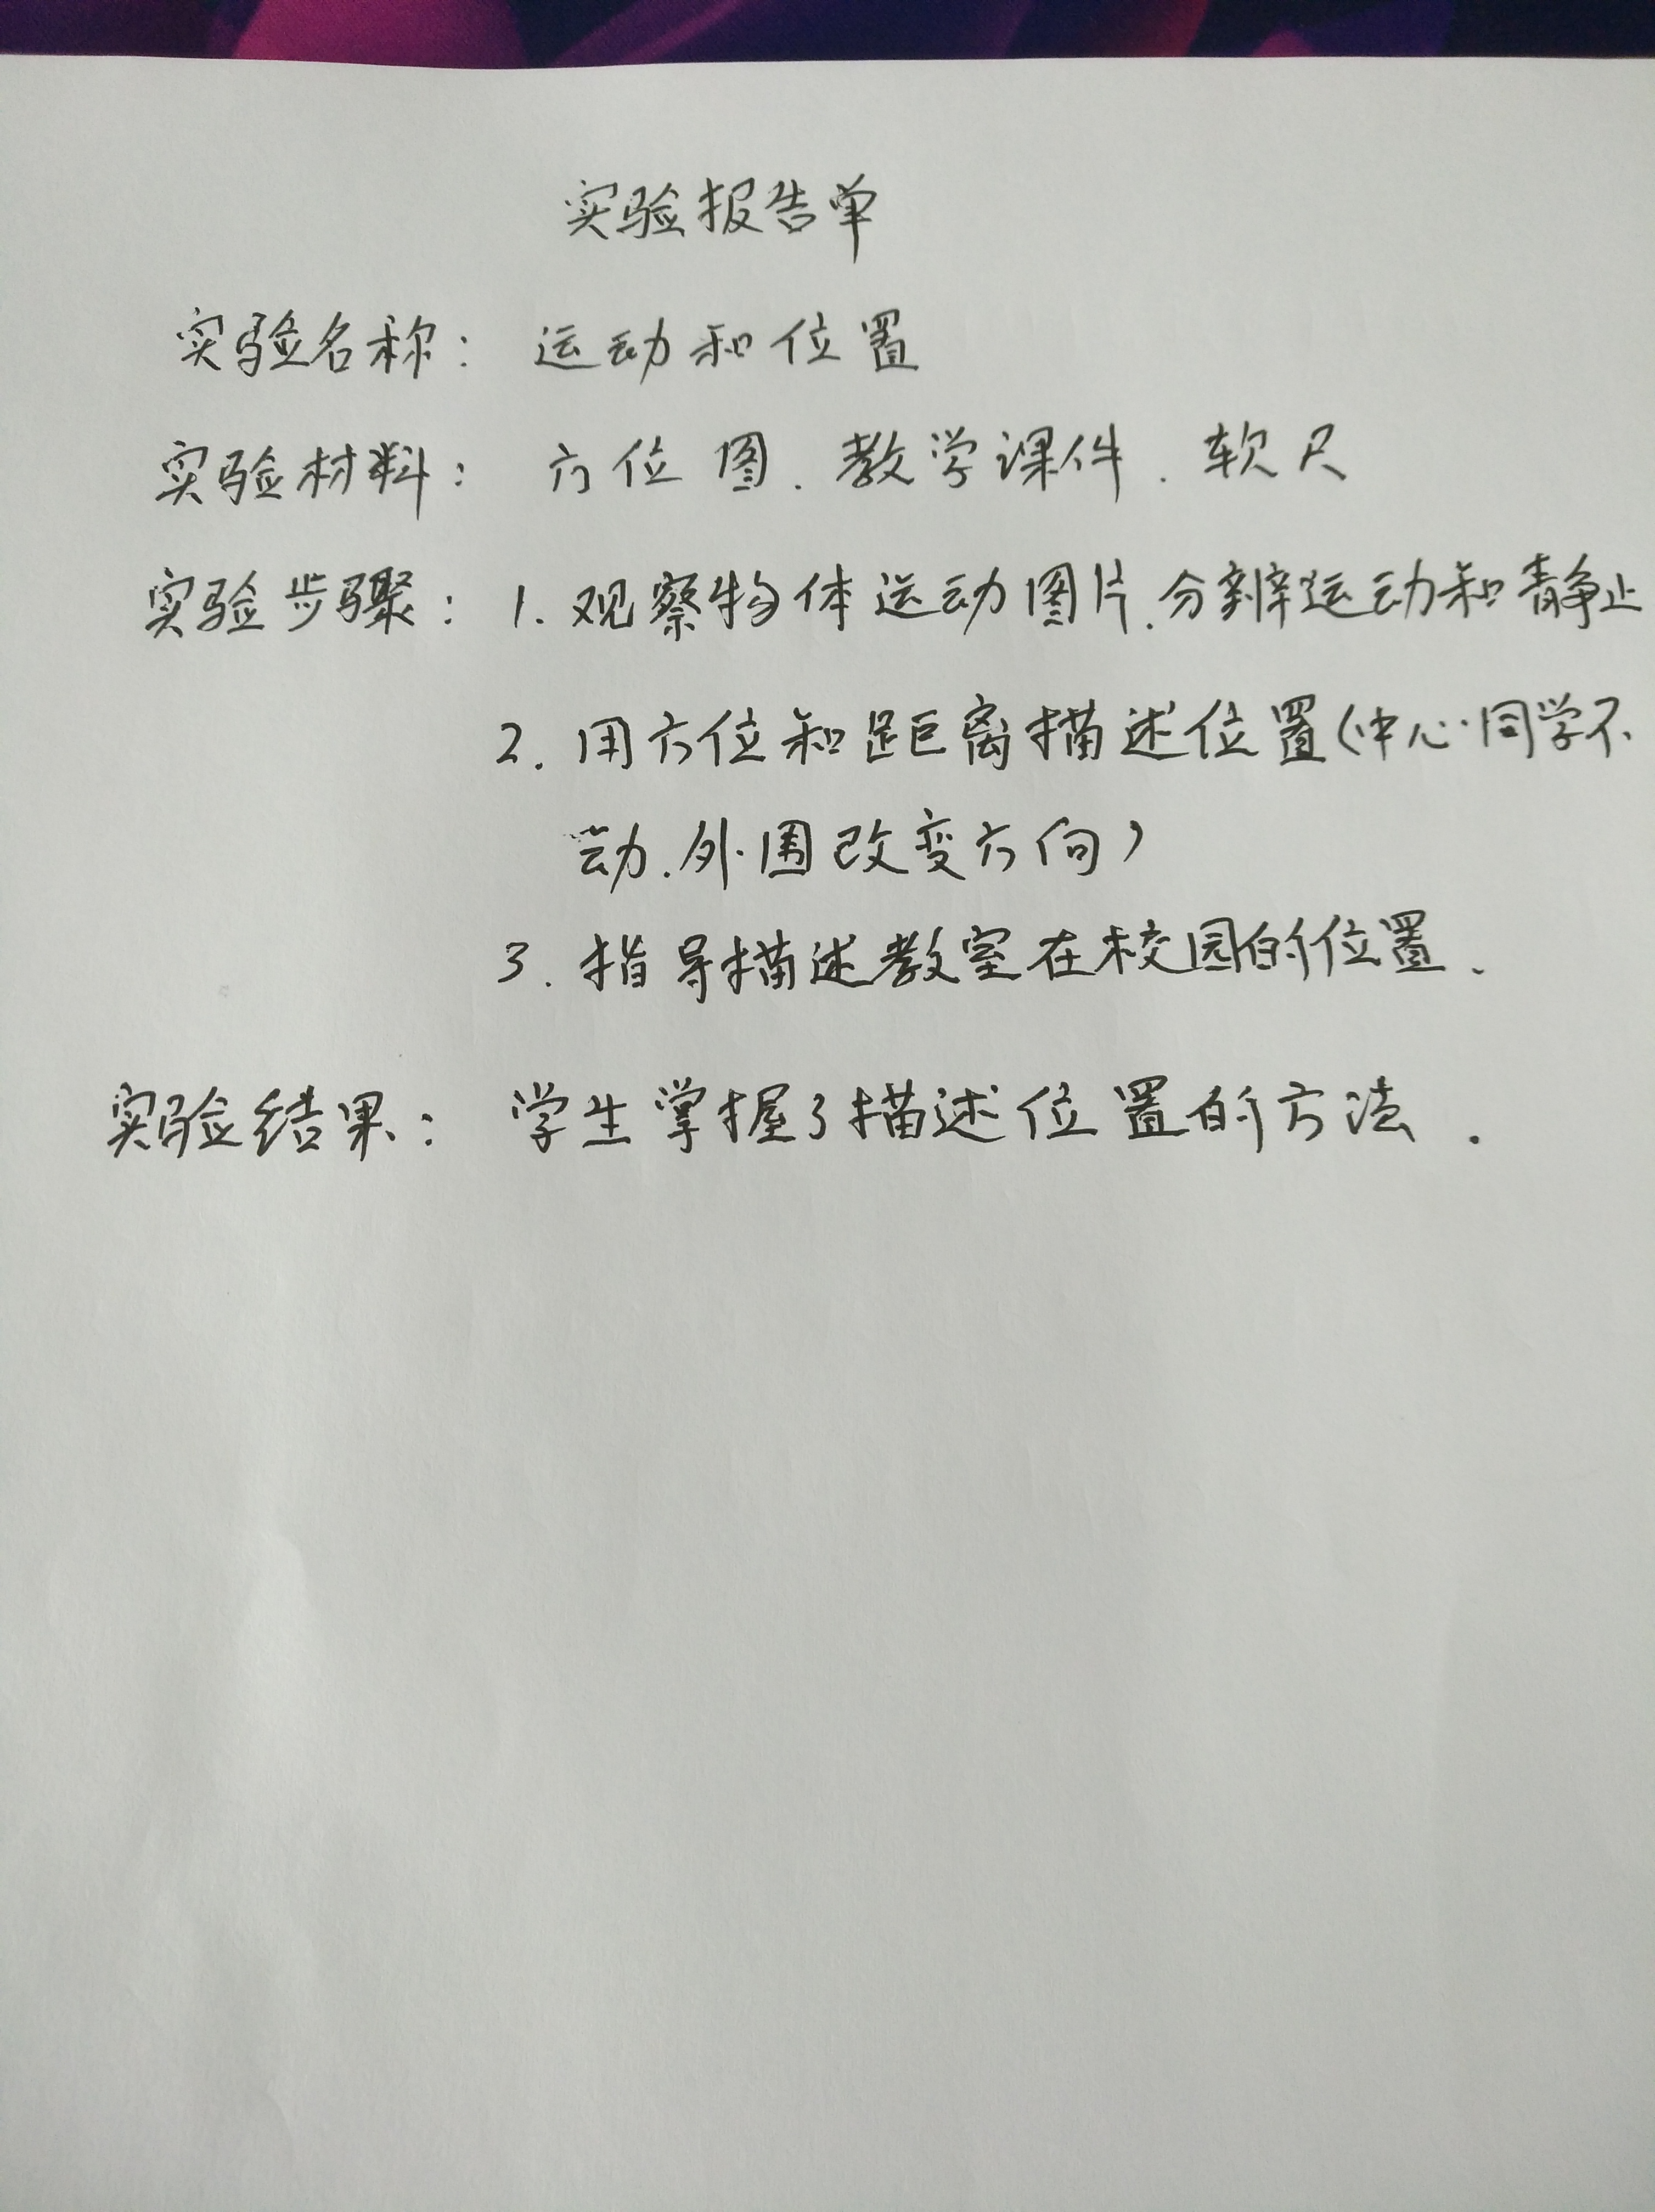 实验报告单
实验名称：运动和位置
实验材料：方位图．教学课件．软尺
实验步骤：1.观察物体运动图片.分辨运动和静止
2.用方位和距离描述位置（中心同学不
动.外围改变方向）
3.指导描述教室在校园的位置.
实验结果：学生掌握了描述位置的方法.